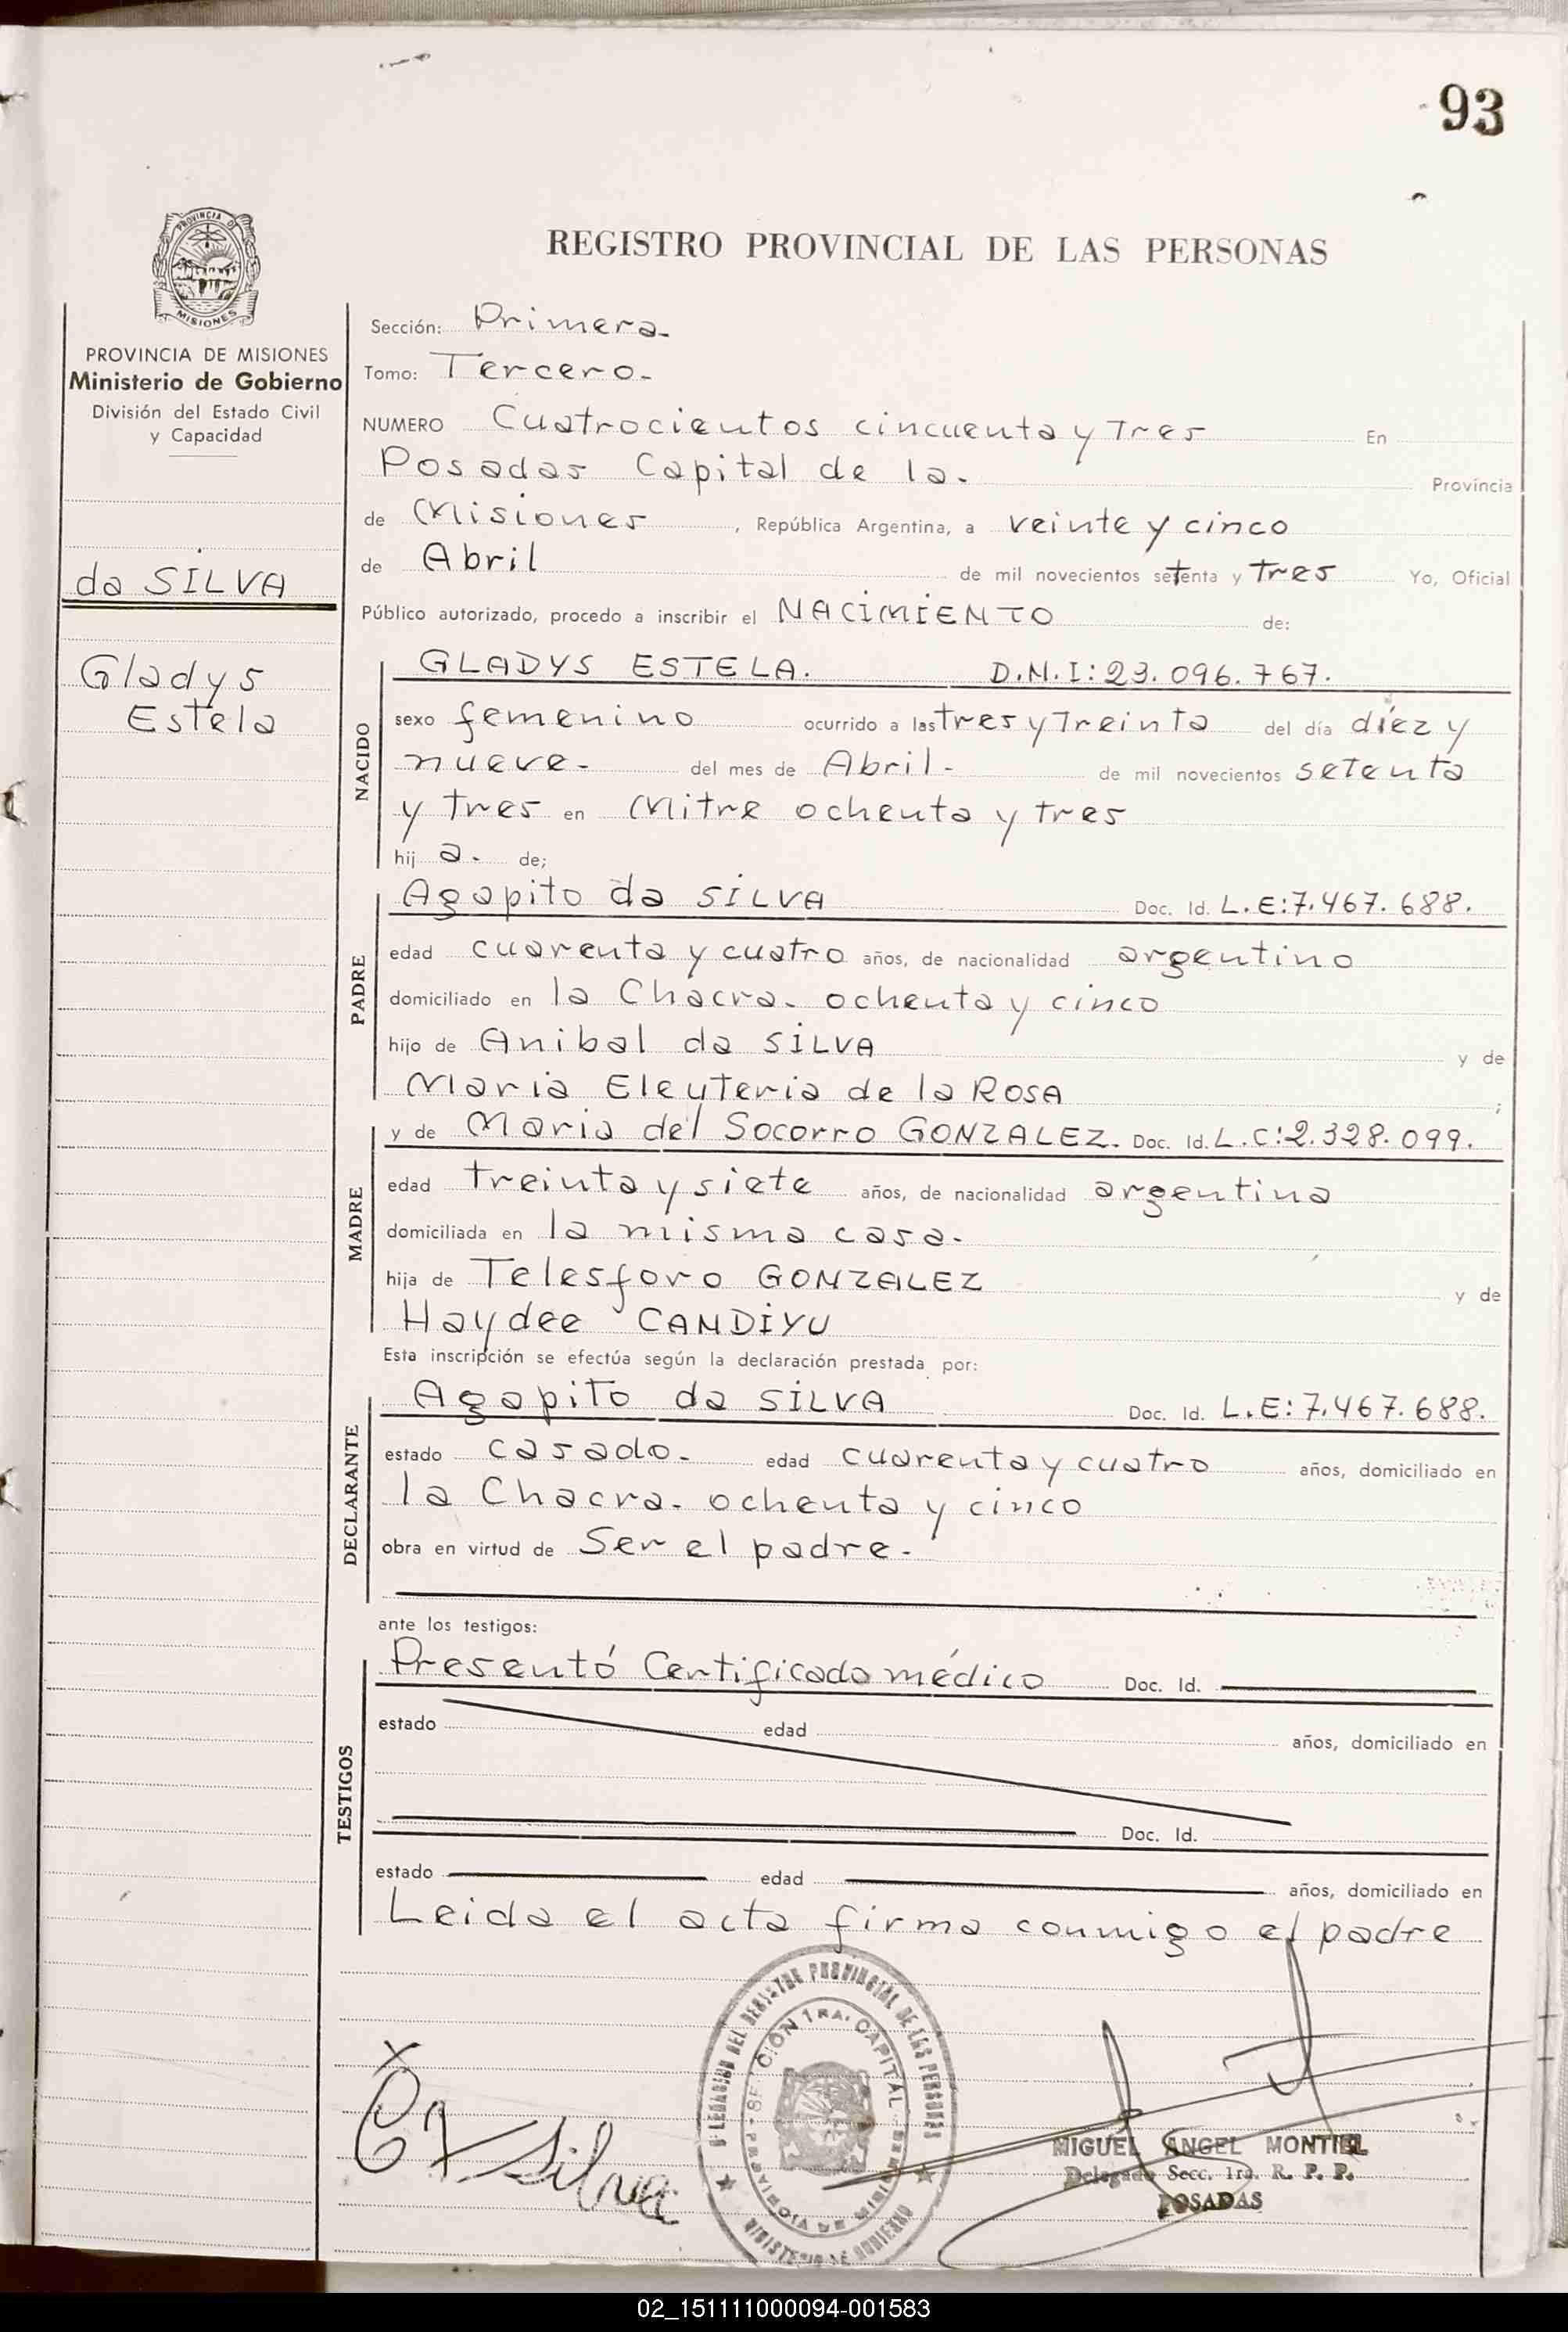 93
PROVINCIA DE
MISIONES
PROVINCIA DE MISIONES
Ministerio de Gobierno
División del Estado Civil
y Capacidad
da SILVA
Gladys
Estela
REGISTRO PROVINCIAL DE LAS PERSONAS
Sección: Primera-
Tomo: Tercero-
NUMERO Cuatrocientos cincuenta y Tres En
Posadas Capital de la. Provincia
de Misiones, República Argentina, a veinte y cinco
de Abril de mil novecientos setenta y tres Yo, Oficial
Público autorizado, procedo a inscribir el NACIMIENTO de:
NACIDO
GLADYS ESTELA. D.N.I: 23.096.767.
sexo femenino ocurrido a las tres y Treinta del día diez y
nueve- del mes de Abril- de mil novecientos setenta
y tres en Mitre ochenta y tres
hij a. de;
PADRE
Agapito da SILVA Doc. Id. L.E: 7.467.688.
edad cuarenta y cuatro años, de nacionalidad argentino
domiciliado en la Chacra- ochenta y cinco
hijo de Anibal da SILVA y de
Maria Eleuteria de la ROSA ;
MADRE
y de Maria del Socorro GONZALEZ. Doc. Id. L.C: 2.328.099.
edad treinta y siete años, de nacionalidad argentina
domiciliada en la misma casa-
hija de Telesforo GONZALEZ y de
Haydee CANDIYU
Esta inscripción se efectúa según la declaración prestada por:
DECLARANTE
Agapito da SILVA Doc. Id. L.E: 7.467.688.
estado casado- edad cuarenta y cuatro años, domiciliado en
la Chacra- ochenta y cinco
obra en virtud de Ser el padre-
ante los testigos:
TESTIGOS
Presentó Certificado médico Doc. Id.
estado edad años, domiciliado en
Doc. Id.
estado edad años, domiciliado en
Leida el acta firma conmigo el padre
X
Silva
DELEGACION DEL REGISTRO PROVINCIAL DE LAS PERSONAS
SECCIÓN 1RA. CAPITAL
PROVINCIA DE MISIONES
MINISTERIO DE GOBIERNO
MIGUEL ANGEL MONTIEL
Delegado Secc. 1ra. R. P. P.
POSADAS
02_151111000094-001583